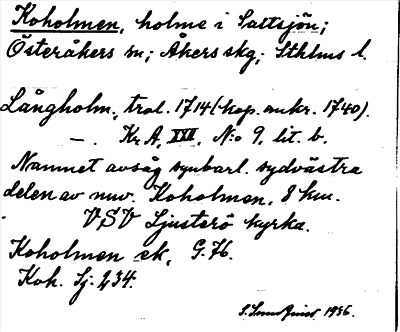 Koholmen, holme i Saltsjön;
Österåkers sn; Åkers skg; Sthlms l.
Långholm, trol. 1714 (kop. omkr. 1740).
—. Kr.A, XXI, N:o 9, lit. b.
Namnet avsåg synbarl. sydvästra
delen av nuv. Koholmen, 8 km.
VSV Ljusterö kyrka.
Koholmen ek, G. 76.
Koh. Sj. 234.
1936.